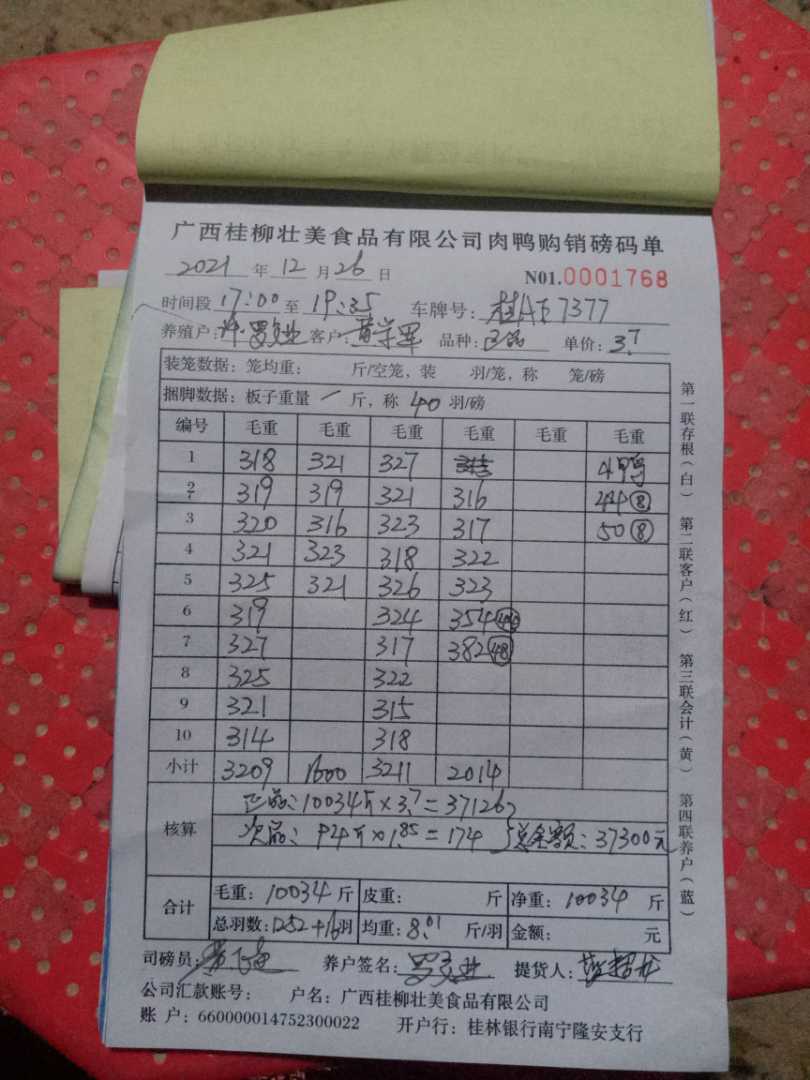 广西桂柳壮美食品有限公司肉鸭购销磅码单
2021 年 12 月 26 日 N01.0001768
时间段 17:00 至 19:35 车牌号: 桂AE7377
养殖户: 客户: 黄学军 品种: 正品 单价: 3.7
装笼数据: 笼均重: 斤/空笼, 装 羽/笼, 称 笼/磅
捆脚数据: 板子重量 一 斤, 称 40 羽/磅
编号 毛重 毛重 毛重 毛重 毛重 毛重
1 318 321 327 次鸭
2 319 319 321 316 44⑧
3 320 316 323 317 50⑧
4 321 323 318 322
5 325 321 326 323
6 319 324 354
7 327 317 382 48
8 325 322
9 321 315
10 314 318
小计 3209 1600 3211 2014
核算
正品: 10034斤×3.7=37126
次品: 94斤×1.85=174 总金额: 37300元
合计
毛重: 10034 斤 皮重: 斤 净重: 10034 斤
总羽数: 1252+16羽 均重: 8.01 斤/羽 金额: 元
司磅员: 养户签名: 提货人:
公司汇款账号: 户名: 广西桂柳壮美食品有限公司
账 户: 660000014752300022 开户行: 桂林银行南宁隆安支行
第一联存根(白) 第二联客户(红) 第三联会计(黄) 第四联养户(蓝)